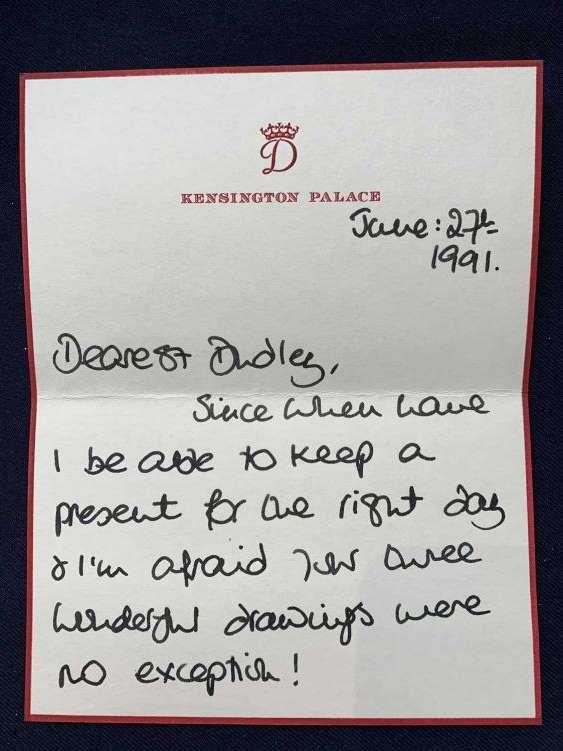 D
KENSINGTON PALACE
June: 27th
1991.
Dearest Dudley,
Since when have
I be able to keep a
present for the right day
& I'm afraid your three
wonderful drawings were
no exception!